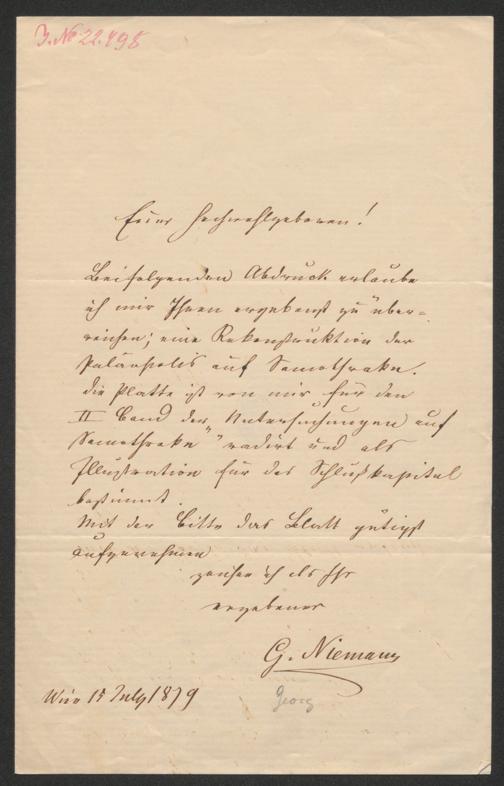 J. № 22.498
Euer Hochwohlgeboren!
Beifolgenden Abdruck erlaube
ich mir Ihnen ergebenst zu über-
reichen; eine Rekonstruktion der
Paläopolis auf Samothrake.
die Platte ist von mir für den
II Band der „Untersuchungen auf
Samothrake" radirt und als
Illustration für das Schlußkapitel
bestimmt.
Mit der Bitte das Blatt gütigst
aufzunehmen
zeichne ich als Ihr
ergebener
G. Niemann
Georg
Wien 15 July 1879